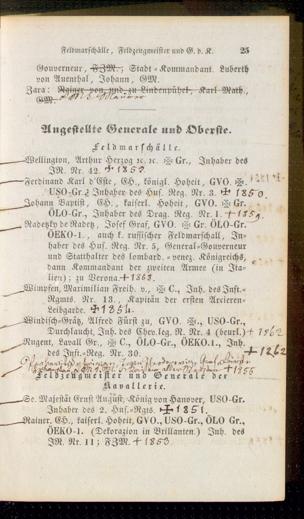 Feldmarschälle, Feldzeugmeister und G. d. K. 25
Gouverneur, FZM.; Stadt-Kommandant Luberth
von Auenthal, Johann, GM.
Zara: Rainer von und zu Lindenbühel, Karl Math.,
GM.
Angestellte Generale und Oberste.
Feldmarschälle.
Wellington, Arthur Herzog ꝛc. ꝛc. ✠ Gr., Inhaber des
IR. Nr. 42. † 1852.
Ferdinand Karl d'Este, EH., königl. Hoheit, GVO. ✠.
USO-Gr., Inhaber des Hus. Reg. Nr. 3. † 1850.
Johann Baptist, EH., kaiserl. Hoheit, GVO. ✠ Gr.
ÖLO-Gr., Inhaber des Drag. Reg. Nr. 1. † 1859.
Radetzky de Radetz, Josef Graf, GVO. ✠ Gr. ÖLO-Gr.
ÖEKO-1., auch k. russischer Feldmarschall, In-
haber des Hus. Reg. Nr. 5, General-Gouverneur
und Statthalter des lombard.-venez. Königreichs,
dann Kommandant der zweiten Armee (in Ita-
lien); zu Verona. † 1858.
Wimpfen, Maximilian Freih. v., ✠ C., Inh. des Inft.-
Rgmts. Nr. 13, Kapitän der ersten Arcieren-
Leibgarde. † 1854.
Windisch-Grätz, Alfred Fürst zu, GVO. ✠., USO-Gr.,
Durchlaucht, Inh. des Chev.leg. R. Nr. 4 (beurl.) † 1862
Nugent, Lavall Gr., ✠ C., ÖLO-Gr., ÖEKO.1., Inh.
des Inft.-Reg. Nr. 30. † 1862
Feldzeugmeister und Generale der
Kavallerie.
Se. Majestät Ernst August, König von Hanover, USO-Gr.
Inhaber des 2. Hus.-Rgts. † 1851.
Rainer, EH., kaiserl. Hoheit, GVO., USO-Gr., ÖLO Gr.,
ÖEKO-1. (Dekorazion in Brillanten.) Inh. des
IR. Nr. 11; FZM. † 1853.